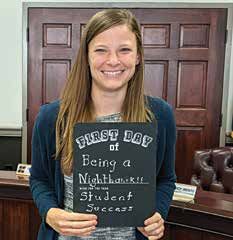 FIRST DAY
of
Being a
Nighthawk!!
Student
Success